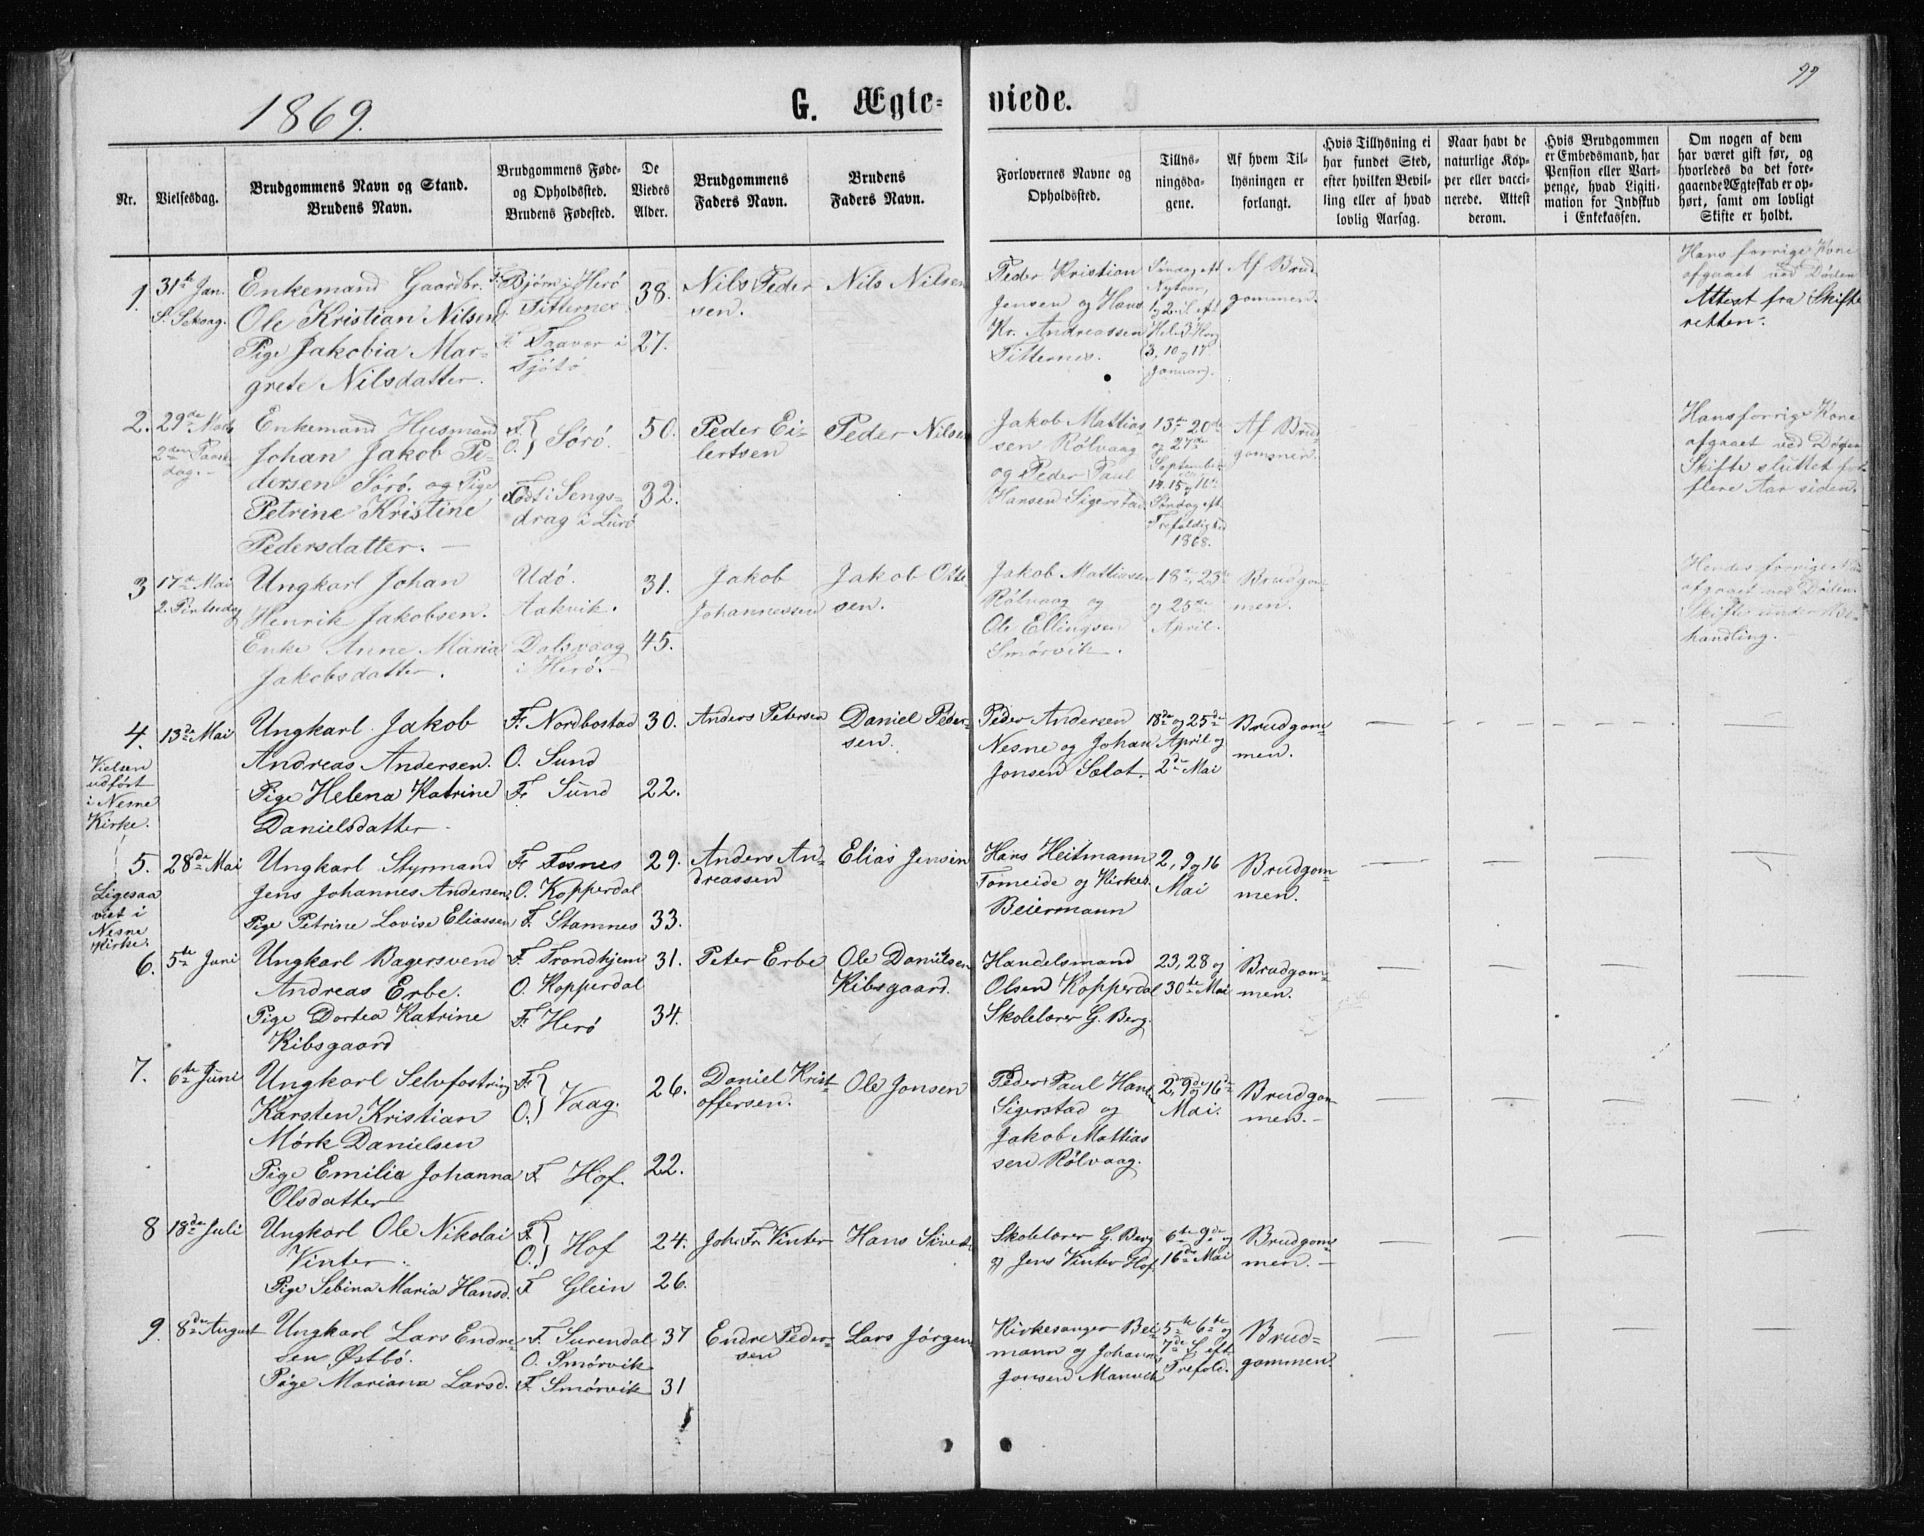 1869.
G. Ægte-
viede.
99
Nr.
Vielsesdag.
Brudgommens Navn og Stand.
Brudens Navn.
Brudgommens Føde-
og Opholdssted.
Brudens Fødested.
De
Viedes
Alder.
Brudgommens
Faders Navn.
Brudens
Faders Navn.
Forlovernes Navne og
Opholdssted.
Tillys-
ningsda-
gene.
Af hvem Til-
lysningen er
forlangt.
Hvis Tillysning ei
har fundet Sted,
efter hvilken Bevil-
ling eller af hvad
lovlig Aarsag.
Naar havt de
naturlige Kop-
per eller vacci-
nerede. Attest
derom.
Hvis Brudgommen
er Embedsmand, har
Pension eller Vart-
penge, hvad Ligiti-
mation for Indskud
i Enkekassen.
Om nogen af dem
har været gift før, og
hvorledes da det fore-
gaaende Ægteskab er op-
hørt, samt om lovligt
Skifte er holdt.
1.
31te Jan.
S. Seksag.
Enkemand Gaardbr.
Ole Kristian Nilsen
Pige Jakobia Mar-
grete Nilsdatter.
F. Bjørn i Herö
O. Titternes
F. Taavær i
Tjötö
38.
27.
Nils Peder
sen.
Nils Nilsen
Peder Kristian
Jensen og Hans
Kr. Andreassen
Titternes.
Söndag eft
Nytaar,
1 og 2. S. eft
Hel. 3 Kong
(3, 10 og 17
Januar).
Af Brud
gommen.
Hans forrige Kone
afgaaet ved Døden
Attest fra Skifte
retten.
2.
29de Marts
2den Paaske
dag.
Enkemand Husmand
Johan Jakob Pe-
dersen Sörö. og Pige
Petrine Kristine
Pedersdatter.
F.
O. } Sörö
Født i Sengs-
drag i Lurö
50.
32.
Peder Ei-
lertsen
Peder Nilsen
Jakob Mattias-
sen Rölvaag
og Peder Paul
Hansen Sigerstad
13de 20de
og 27de
September
14. 15 og 16de
Söndag eft.
Trefoldighed
1868.
Af Brud-
gommen.
Hans forrige Kone
afgaaet ved Døden
Skifte sluttet for
flere Aar siden.
3
17de Mai
2. Pintsedag
Ungkarl Johan
Henrik Jakobsen.
Enke Anne Maria
Jakobsdatter.
Udö.
Aakvik.
Dalsvaag
i Herö.
31.
45.
Jakob
Johannessen
Jakob Otte
sen.
Jakob Mattiassen
Rölvaag og
Ole Ellingsen
Smörvik.
18de, 23de
og 25de
April.
Brudgom-
men.
Hendes forrige Mand
afgaaet ved Døden.
Skifte under Be-
handling.
4.
13de Mai
Vielsen
udført
i Nesne
Kirke.
Ungkarl Jakob
Andreas Andersen.
Pige Helena Katrine
Danielsdatter.
F. Nordbostad
O. Sund
F. Sund
30.
22.
Anders Petersen
Daniel Peder-
sen.
Peder Andersen
Nesne og Johan
Jonsen Sælot.
18de og 25de
April og
2de Mai
Brudgom-
men.
5.
28de Mai
Ligesaa
viet i
Nesne
Kirke.
Ungkarl Styrmand
Jens Johannes Andersen
Pige Petrine Lovise Eliassen
F. Tosnes
O. Kopperdal
F. Stamnes
29.
33.
Anders An-
dreassen
Elias Jensen
Hans Heitmann
Tomeide og Kirkes.
Beiermann
2, 9 og 16
Mai
Brudgom-
men.
6.
5te Juni
Ungkarl Bagersvend
Andreas Erbe.
Pige Dortea Katrine
Kibsgaard
F. Trondhjem
O. Kopperdal
F. Herö
31.
34.
Peter Erbe
Ole Danielsen
Kibsgaard.
Handelsmand
Olsen Kopperdal
Skolelærer G. Berg.
23, 28 og
30te Mai
Brudgom-
men.
7.
6te Juni
Ungkarl Selvfostring
Karsten Kristian
Mörk Danielsen
Pige Emilia Johanna
Olsdatter
F.
O. } Vaag.
F. Hof.
26.
22.
Daniel Krist-
offersen.
Ole Jonsen
Peder Paul Hans.
Sigerstad og
Jakob Mattias
sen Rölvaag.
2de, 9de og 16de
Mai.
Brudgom
men.
8
18de Juli
Ungkarl Ole Nikolai
Vinter.
Pige Sebina Maria Hansd.
F.
O. } Hof
F. Glein
24.
26.
Joh. Fr. Vinter
Hans Siverts
Skolelærer G. Berg
og Jens Vinter Hof.
6te 9de og
16de Mai
Brudgom-
men.
9.
8de August
Ungkarl Lars Endre-
sen Østbö.
Pige Mariana Larsd.
F. Surendal
O. Smörvik
F. Smörvik
37
31
Endre Peder-
sen
Lars Jörgens
Kirkesanger Bei-
mann og Johans
Jonsen Manvik
5te 6te og
7de S. eft.
Trefold.
Brud-
gommen.